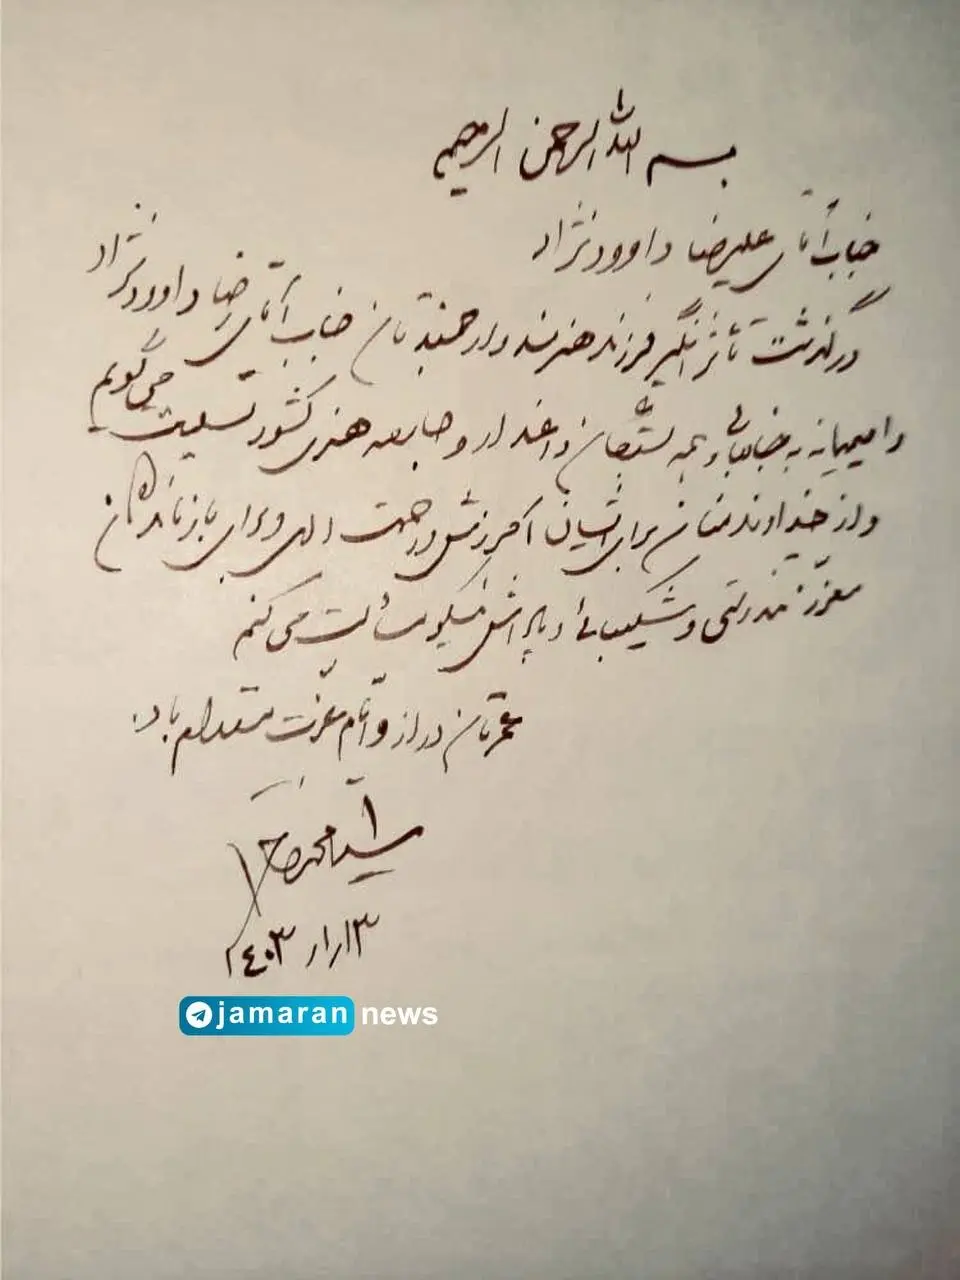 بسم الله الرحمن الرحیم
جناب آقای علیرضا داوودنژاد
درگذشت تأثرانگیز فرزند هنرمند و ارجمندتان جناب آقای رضا داوودنژاد
را صمیمانه به جنابعالی و همه بستگان داغدار و جامعه هنری کشور تسلیت می گویم
و از خداوند منان برای ایشان آمرزش و رحمت الهی و برای بازماندگان
معزز تندرستی و شکیبایی و پاداش نیکو مسألت می کنم
عمرتان دراز و ایام عزت مستدام باد.
سید محمد خاتمی
۱۴۰۳/۱/۱۳
jamaran news